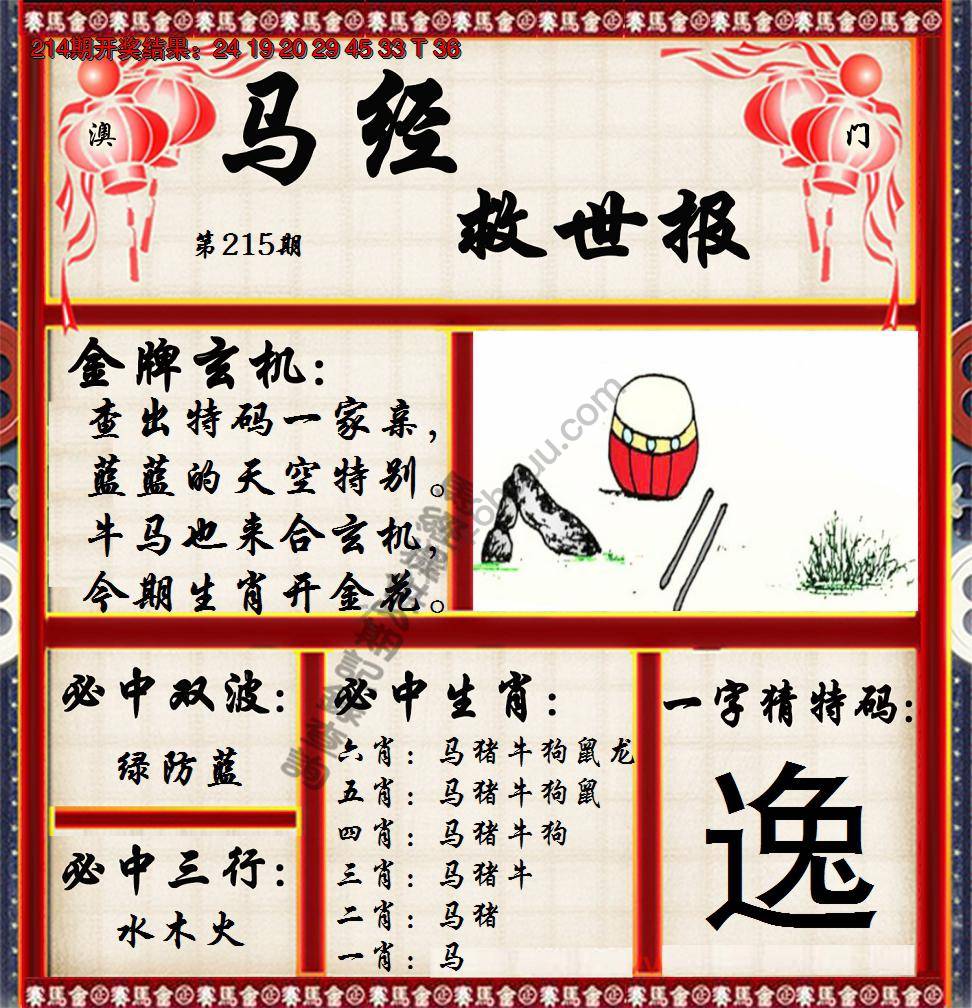 214期开奖结果：24 19 20 29 45 33 T 36
澳
门
马经
救世报
第215期
金牌玄机：
查出特码一家亲，
蓝蓝的天空特别。
牛马也来合玄机，
今期生肖开金花。
必中双波：
绿防蓝
必中三行：
水木火
必中生肖：
六肖：马猪牛狗鼠龙
五肖：马猪牛狗鼠
四肖：马猪牛狗
三肖：马猪牛
二肖：马猪
一肖：马
一字猜特码：
逸